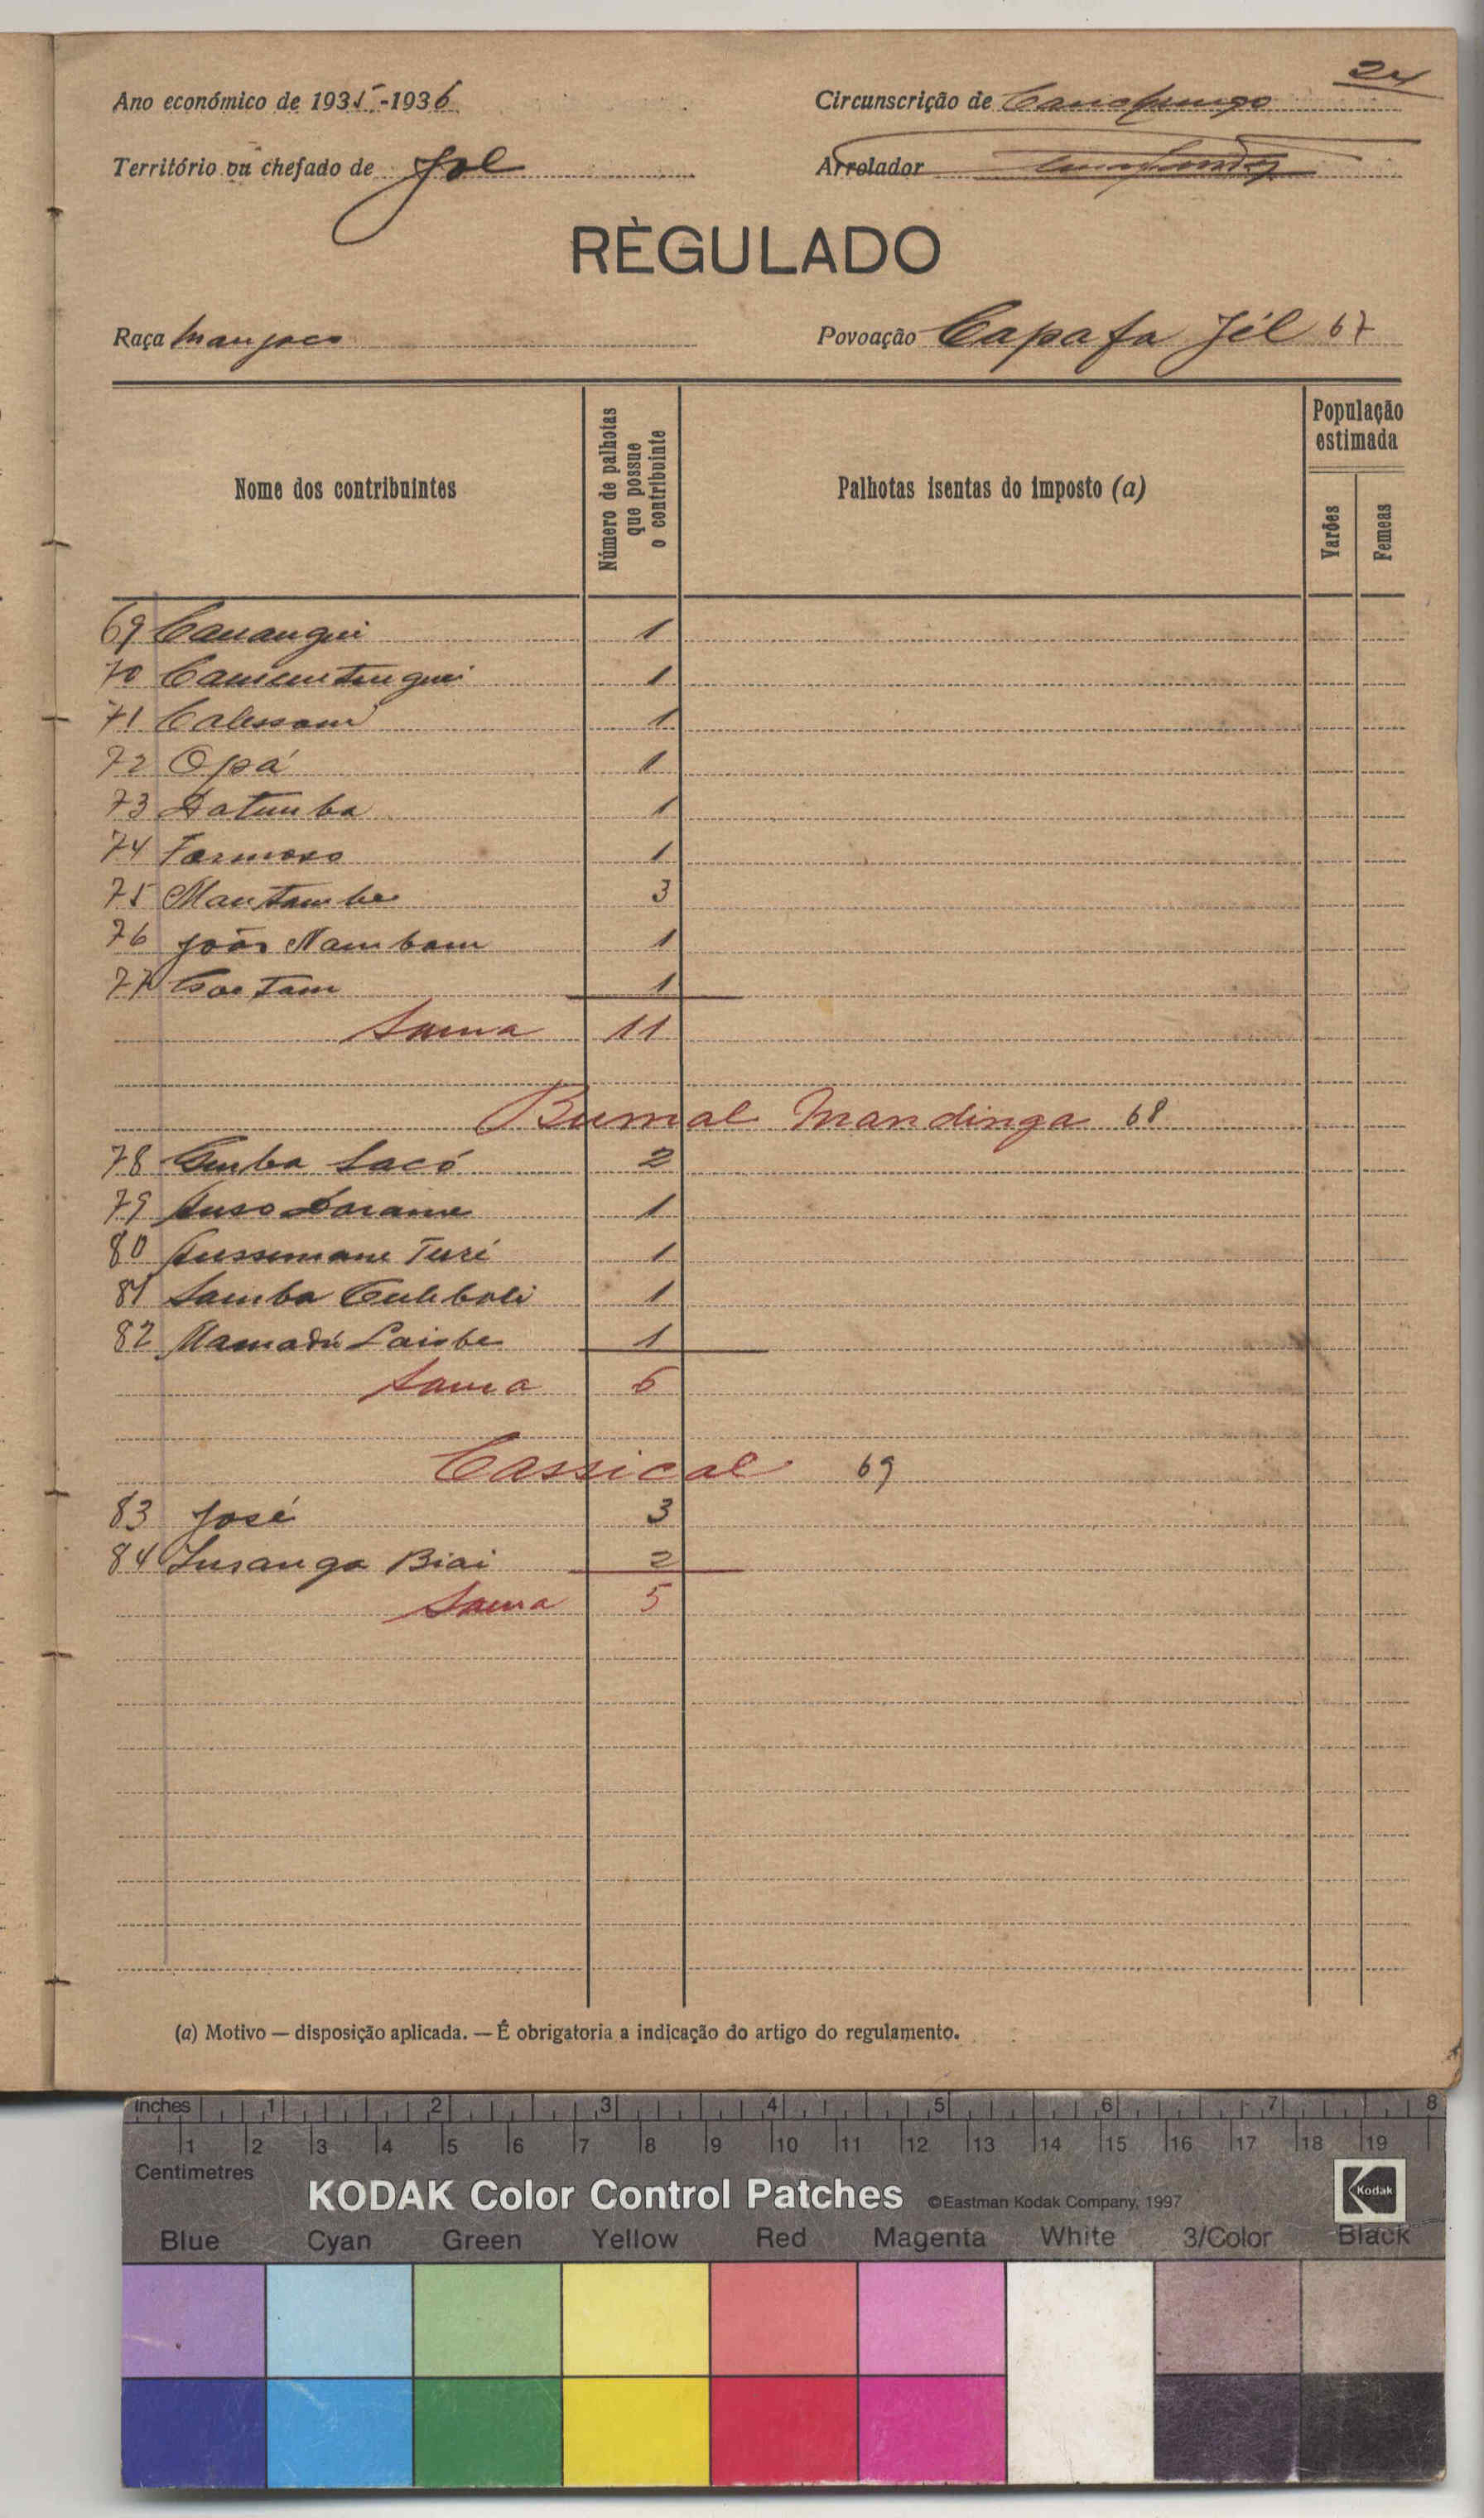 24
Ano económico de 1935-1936 Circunscrição de Canchungo
Território ou chefado de Jol Arrolador
RÈGULADO
Raça Manjaco Povoação Capafa Jél 67
Nome dos contribuintes Número de palhotas que possue o contribuinte Palhotas isentas do imposto (a) População estimada
Varões Femeas
69 Canangui 1
70 1
71 1
72 Opá 1
73 Datumba 1
74 Formoso 1
75 Mantambe 3
76 João Nambam 1
77 Caetam 1
Soma 11
Bumal Mandinga 68
78 Saco 2
79 1
80 Turé 1
81 Samba 1
82 Mamadú 1
Soma 6
Cassical 69
83 José 3
84 Biai 2
Soma 5
(a) Motivo — disposição aplicada. — É obrigatoria a indicação do artigo do regulamento.
Inches 1 2 3 4 5 6 7 8
1 2 3 4 5 6 7 8 9 10 11 12 13 14 15 16 17 18 19
Centimetres
KODAK Color Control Patches ©Eastman Kodak Company, 1997 Kodak
Blue Cyan Green Yellow Red Magenta White 3/Color Black